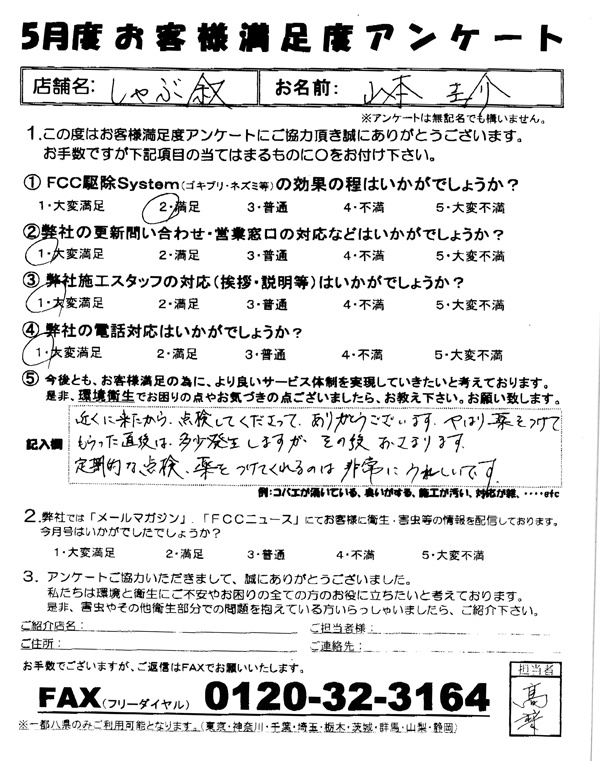 5月度お客様満足度アンケート
店舗名: しゃぶ叙 お名前: 山本 圭介
※アンケートは無記名でも構いません。
1.この度はお客様満足度アンケートにご協力頂き誠にありがとうございます。
お手数ですが下記項目の当てはまるものに○をお付け下さい。
①FCC駆除System(ゴキブリ・ネズミ等)の効果の程はいかがでしょうか?
1・大変満足 2・満足 3・普通 4・不満 5・大変不満
②弊社の更新問い合わせ・営業窓口の対応などはいかがでしょうか?
1・大変満足 2・満足 3・普通 4・不満 5・大変不満
③弊社施工スタッフの対応(挨拶・説明等)はいかがでしょうか?
1・大変満足 2・満足 3・普通 4・不満 5・大変不満
④弊社の電話対応はいかがでしょうか?
1・大変満足 2・満足 3・普通 4・不満 5・大変不満
⑤今後とも、お客様満足の為に、より良いサービス体制を実現していきたいと考えております。
是非、環境衛生でお困りの点やお気づきの点ございましたら、お教え下さい。お願い致します。
記入欄
近くに来たから、点検してくださって、ありがとうございます。やはり薬をつけて
もらった直後は、多少発生しますが その後 おさまります。
定期的な点検、薬をつけてくれるのは 非常に うれしいです。
例:コバエが湧いている、臭いがする、施工が汚い、対応が雑、・・・・etc
2.弊社では「メールマガジン」.「FCCニュース」にてお客様に衛生・害虫等の情報を配信しております。
今月号はいかがでしたでしょうか?
1・大変満足 2・満足 3・普通 4・不満 5・大変不満
3. アンケートご協力いただきまして、誠にありがとうございました。
私たちは環境と衛生にご不安やお困りの全ての方のお役に立ちたいと考えております。
是非、害虫やその他衛生部分での問題を抱えている方いらっしゃいましたら、ご紹介下さい。
ご紹介店名: ご担当者様:
ご住所: ご連絡先:
お手数でございますが、ご返信はFAXでお願いいたします。
FAX(フリーダイヤル) 0120-32-3164
※一都八県のみご利用可能となります。(東京・神奈川・千葉・埼玉・栃木・茨城・群馬・山梨・静岡)
担当者
高